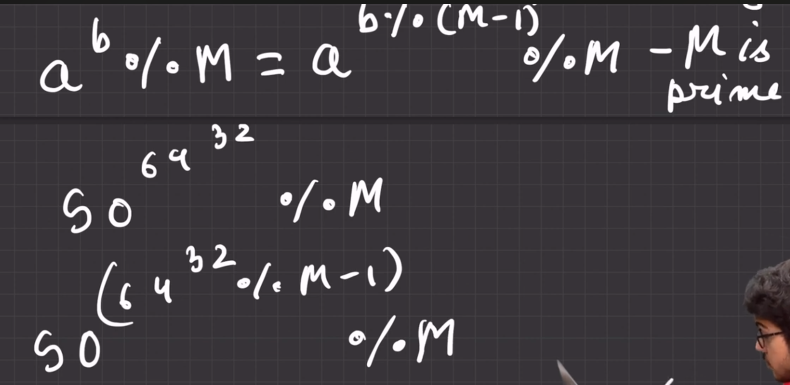 a^b % M = a^b % (M-1) % M - M is prime
50^64^32 % M
50^(64^32 % M-1) % M